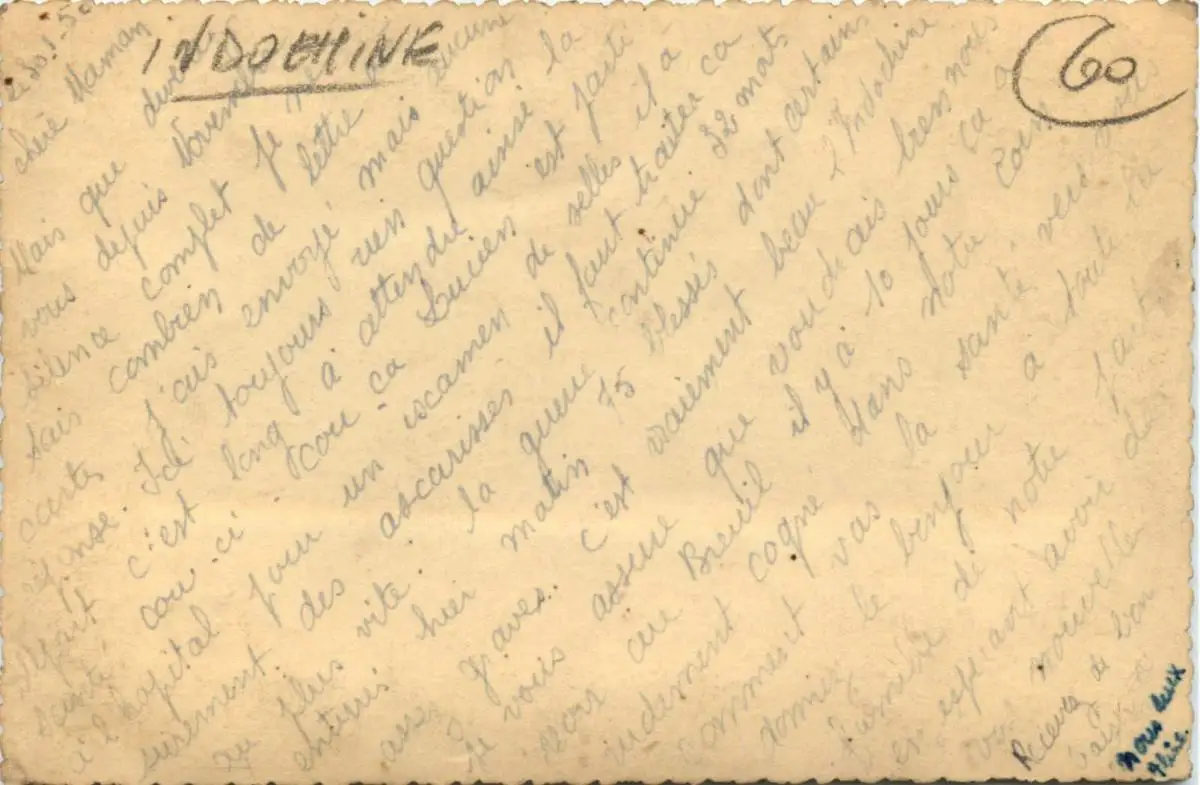 INDOCHINE
60
le 30.1.50
chère Maman
Mais que
vous depuis Novembre
silence complet je ne
sais combien de lettre ou
cartes j'ais envoyé mais aucune
réponse. Ici toujours rien question
Départ c'est long à attendre ainsi la
santé couci couça Lucien est parti
à l'hôpital pour un iscamen de selles il a
surement des ascarisses il faut traiter ca
au plus vite. la guerre continue 32 morts
enterrés hier matin 75 blessés dont certains
assez graves. c'est vraiment beau l'Indochine
je vous assure que voudrais bien nous
voir au Breuil il y a 10 jours ca a
rudement cogné dans notre zone
comment vas la santé, vous
donner le bonjour à toute la
famille de notre part
en espérant avoir de
vos nouvelle
Recevez de bon
nous deux